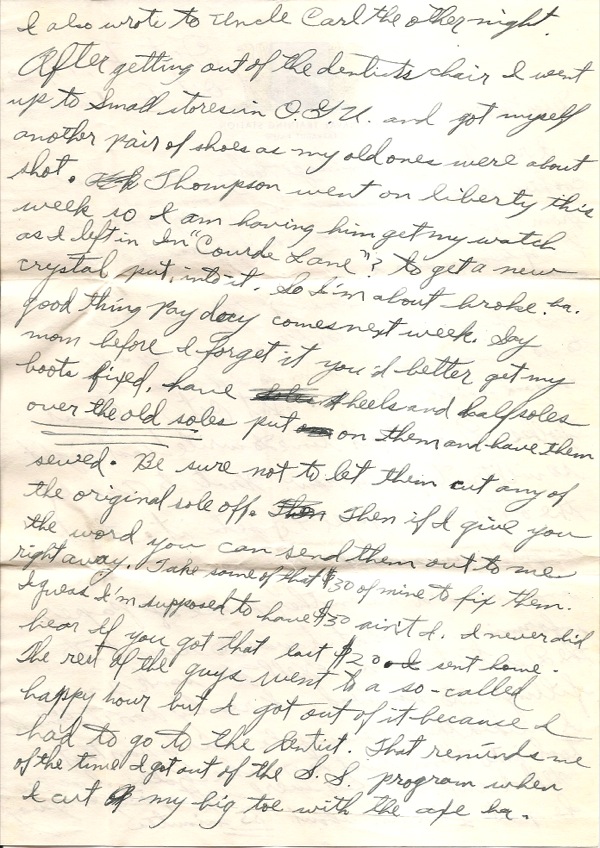 I also wrote to Uncle Carl the other night.
After getting out of the dentists chair I went
up to Small stores in O.G.U. and got myself
another pair of shoes as my old ones were about
shot. Thompson went on liberty this
week so I am having him get my watch
as I left in In "Courde Lane"? to get a new
crystal put into it. So I'm about broke. ha.
good thing pay day comes next week. Say
mom before I forget it you'd better get my
boots fixed, have heels and half soles
over the old soles put on them and have them
sewed. Be sure not to let them cut any of
the original sole off. Then if I give you
the word you can send them out to me
right away. Take some of that $30 of mine to fix them.
I guess I'm supposed to have $30 ain't I. I never did
hear if you got that last $20 I sent home.
The rest of the guys went to a so-called
happy hour but I got out of it because I
had to go to the dentist. That reminds me
of the time I got out of the S.S. program when
I cut my big toe with the axe ha.